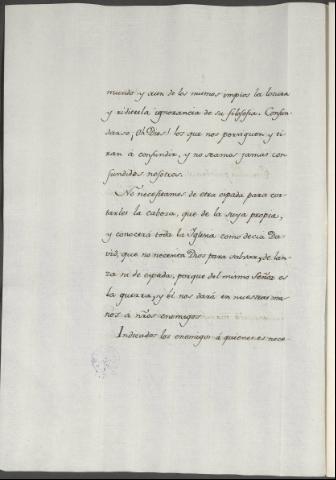 mundo y aun de los mismos impios la locura
y ridicula ignorancia de su filosofia. Confun
danse, ¡Oh Dios! los que nos persiguen y ti
ran á confundir, y no seamos jamas con
fundidos nosotros.
No necesitamos de otra espada para cor
tarles la cabeza, que de la suya propia,
y conocerá toda la Iglesia como decia Da
vid, que no necesita Dios para salvar, de lan
za ni de espada, porque del mismo Señor es
la guerra, y él nos dará en nuestras ma
nos á nros enemigos.
Indicados los enemigos á quienes es nece-